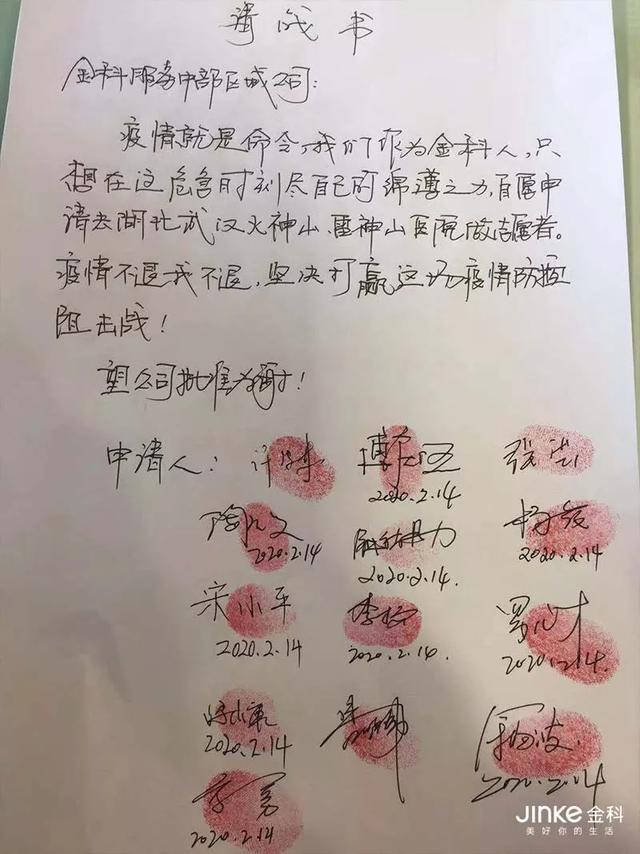 请战书
金科服务中部区域公司:
疫情就是命令,我们作为金科人,只
想在这危急时刻尽自己的绵薄之力,自愿申
请去湖北武汉火神山、雷神山医院做志愿者。
疫情不退我不退,坚决打赢这场疫情防控
阻击战!
望公司批准为谢!
申请人:
2020.2.14
2020.2.14 2020.2.14 2020.2.14
宋小平 李
2020.2.14 2020.2.14 2020.2.14
2020.2.14 波
2020.2.14
李勇
2020.2.14
JINKE金科
美好你的生活